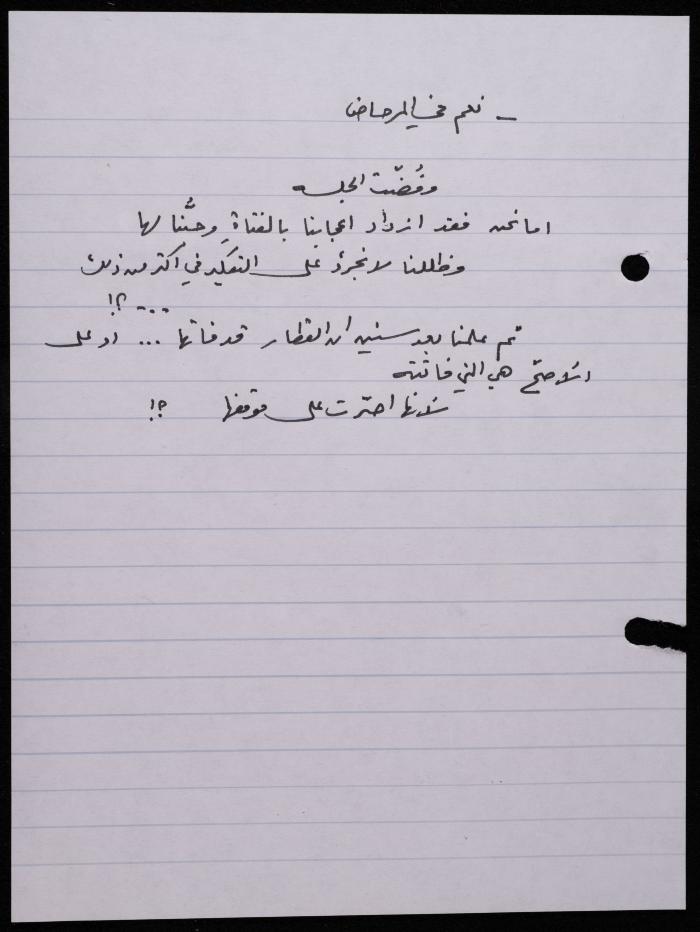 – نعم في المرحاض
وفُضّت الجلسه
اما نحن فقد ازداد اعجابنا بالفتاةِ وحبُّنا لها
وظللنا لا نجرؤ على التفكير في اكثر من ذلك
... ؟!
ثم علمنا بعد سنين ان القطار قد فاتها ... او على
الاصحّ هي التي فاتته
لانها اصرّت على موقفها ؟!